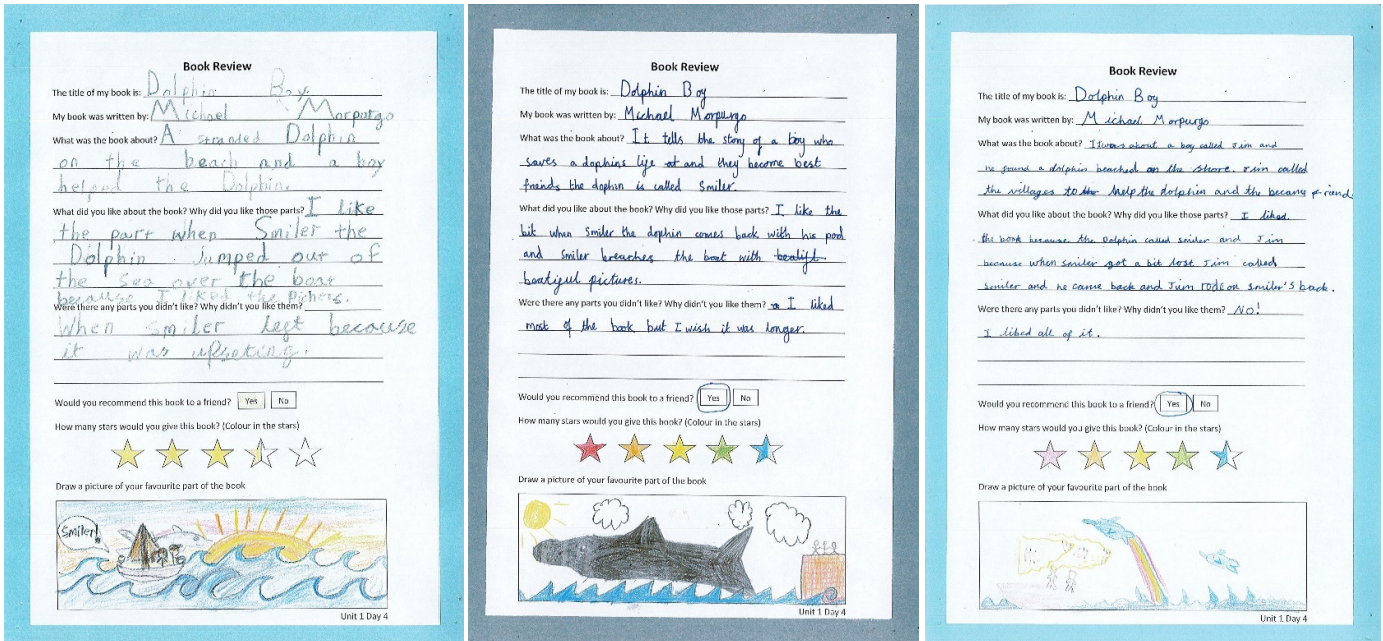 Book Review
The title of my book is: Dolphin Boy.
My book was written by: Michael Morpurgo
What was the book about? A stranded Dolphin
on the beach and a boy
helped the Dolphin.
What did you like about the book? Why did you like those parts? I like
the part when Smiler the
Dolphin jumped out of
the sea over the boat
because I liked the pichers.
Were there any parts you didn't like? Why didn't you like them?
When smiler left because
it was upseting.
Would you recommend this book to a friend? Yes No
How many stars would you give this book? (Colour in the stars)
Draw a picture of your favourite part of the book
Smiler!
Unit 1 Day 4
Book Review
The title of my book is: Dolphin Boy
My book was written by: Michael Morpurgo
What was the book about? It tells the story of a boy who
saves a dophins life at and they become best
friends the dophin is called Smiler.
What did you like about the book? Why did you like those parts? I like the
bit when Smiler the dophin comes back with his pod
and Smiler breaches the boat with
boatiful pictures.
Were there any parts you didn't like? Why didn't you like them? I liked
most of the book but I wish it was longer.
Would you recommend this book to a friend? Yes No
How many stars would you give this book? (Colour in the stars)
Draw a picture of your favourite part of the book
Unit 1 Day 4
Book Review
The title of my book is: Dolphin Boy
My book was written by: Michael Morpurgo
What was the book about? It was about a boy called Jim and
he found a dolphin beached on the shore. Jim called
the villages to help the dolphin and the becamy friend
What did you like about the book? Why did you like those parts? I liked
the book because the Dolphin called smiler and Jim
because when smiler got a bit lost Jim called
smiler and he came back and Jim rode on smiler's back.
Were there any parts you didn't like? Why didn't you like them? No!
I liked all of it.
Would you recommend this book to a friend? Yes No
How many stars would you give this book? (Colour in the stars)
Draw a picture of your favourite part of the book
Unit 1 Day 4